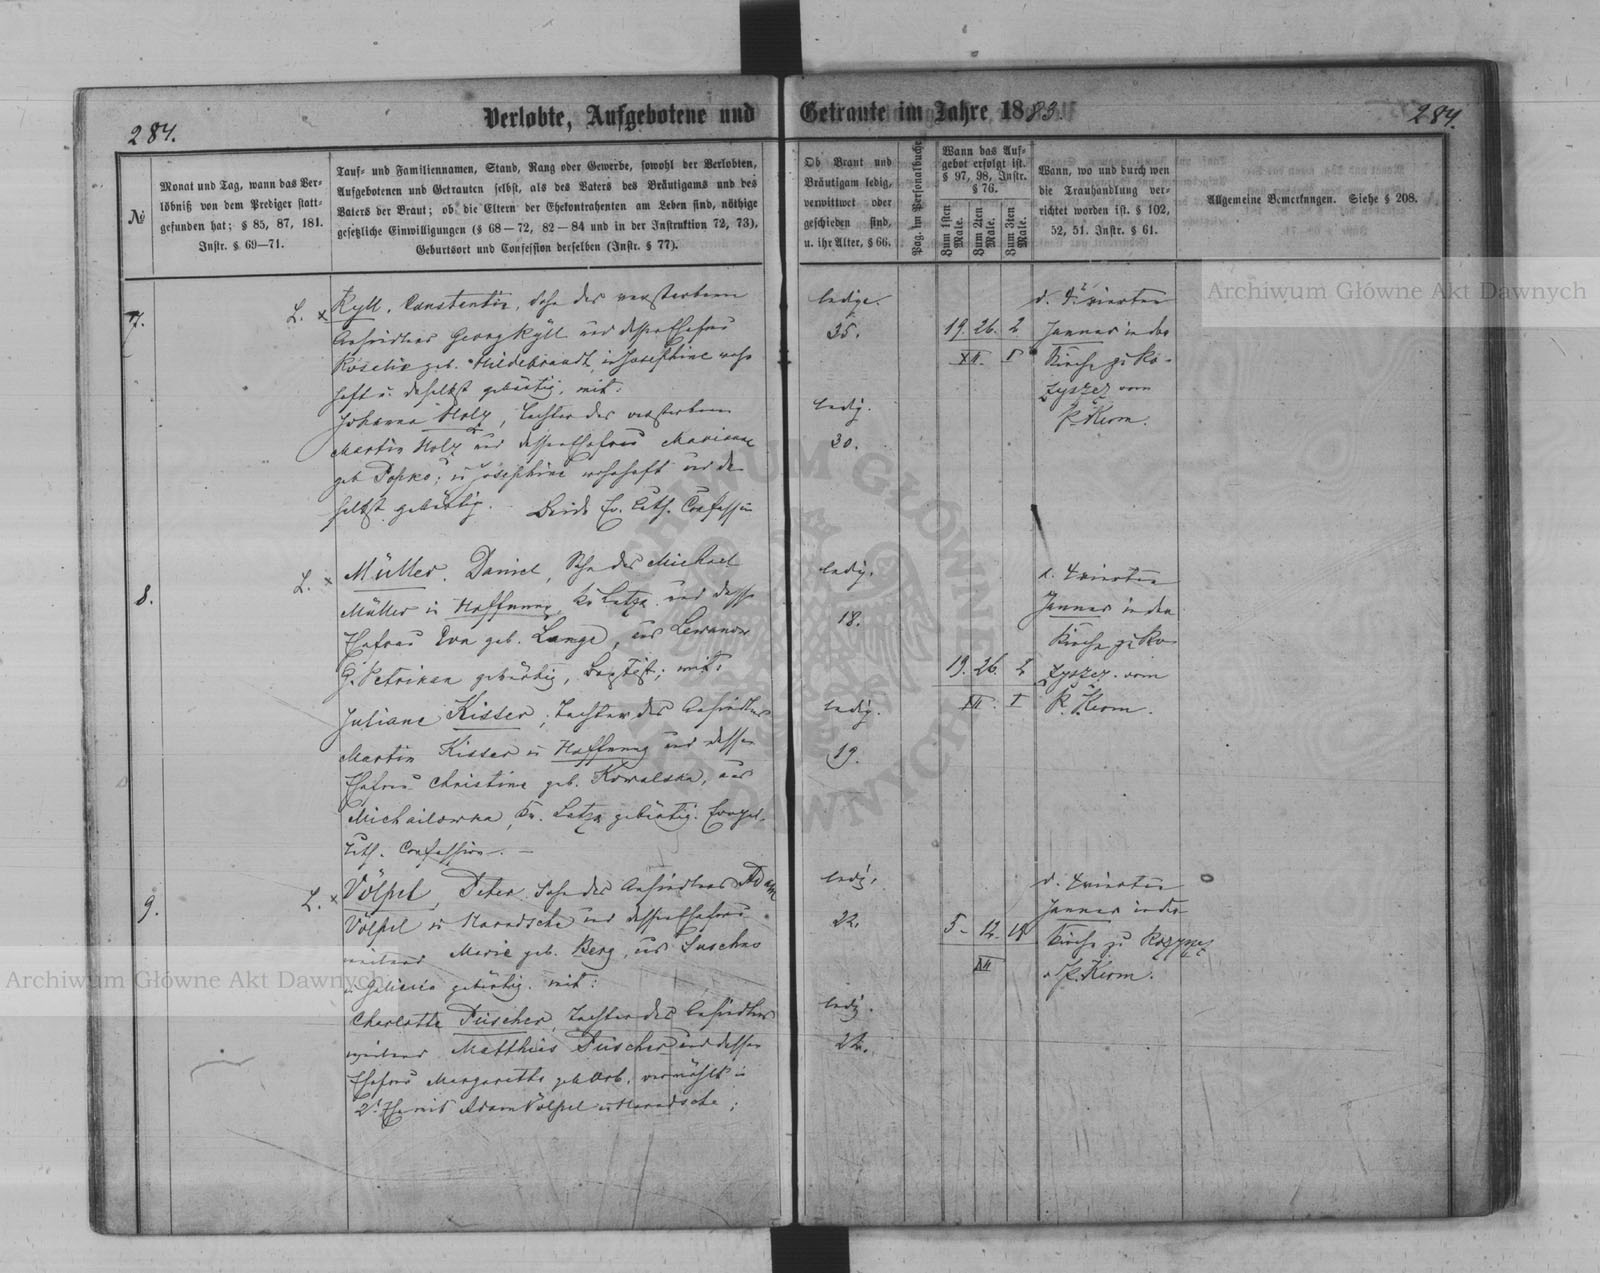 284.
Verlobte, Aufgebotene und
№
Monat und Tag, wann das Ver-
löbniß von dem Prediger statt-
gefunden hat; § 85, 87, 181.
Instr. § 69—71.
Tauf- und Familiennamen, Stand, Rang oder Gewerbe, sowohl der Verlobten,
Aufgebotenen und Getrauten selbst, als des Vaters des Bräutigams und des
Vaters der Braut; ob die Eltern der Ehekontrahenten am Leben sind, nöthige
gesetzliche Einwilligungen (§ 68—72, 82—84 und in der Instruktion 72, 73),
Geburtsort und Confession derselben (Instr. § 77).
7.
L. x Kyll, Constantin, Sohn des verstorbenen
Ansiedlers Georg Kyll und dessen Ehefrau
Roselie geb. Hildebrandt, in Josephine wohn-
haft u. daselbst gebürtig, mit:
Johanna Holz, Tochter des verstorbenen
Martin Holz und dessen Ehefrau Marianne
geb. Popko; in Josephine wohnhaft und da-
selbst gebürtig. – Beide Ev. Luth. Confession
8.
L. x Müller, Daniel, Sohn des Michael
Müller in Hoffnung, Kr. Lutzk und dessen
Ehefrau Eva geb. Lange, aus
G. Petrikau gebürtig, Baptist; mit:
Juliane Kisser, Tochter des Ansiedlers
Martin Kisser in Hoffnung und dessen
Ehefrau Christine geb. Kowalska, aus
Michailowka, Kr. Lutzk gebürtig. Evangel.
Luth. Confession. —
9.
L. x Völpel, Peter, Sohn des Ansiedlers Adam
Völpel in und dessen Ehefrau
weiland Marie geb. Berg, aus
in Galicien gebürtig, mit:
Charlotte Füscher, Tochter des Ansiedlers
weiland Matthias Füscher und dessen
Ehefrau Margarethe geb. Orb, vermählt in
2r Ehe mit Adam Völpel in
Getraute im Jahre 1883.
284.
Ob Braut und
Bräutigam ledig,
verwittwet oder
geschieden sind,
u. ihr Alter, § 66.
Pag. im Personalbuche
Wann das Auf-
gebot erfolgt ist.
§ 97, 98, Instr.
§ 76.
Zum 1sten Male.
Zum 2ten Male.
Zum 3ten Male.
Wann, wo und durch wen
die Trauhandlung ver-
richtet worden ist. § 102,
52, 51. Instr. § 61.
Allgemeine Bemerkungen. Siehe § 208.
ledig.
35.
ledig.
30.
19. 26. 2
XII. I
d. 4 vierten
Januar in der
Kirche zu Ro-
zyszcz vom
P. Kerm.
ledig.
18.
ledig.
19.
19. 26. 2
XII. I
d. 4 vierten
Januar in der
Kirche zu Ro-
zyszcz. vom
P. Kerm.
ledig.
22.
ledig.
22.
5. 12. 19
XII
d. 4 vierten
Januar in der
Kirche zu Rozyszcz
P. Kerm.
Archiwum Główne Akt Dawnych
Archiwum Główne Akt Dawnych
ARCHIWUM GŁÓWNE AKT DAWNYCH